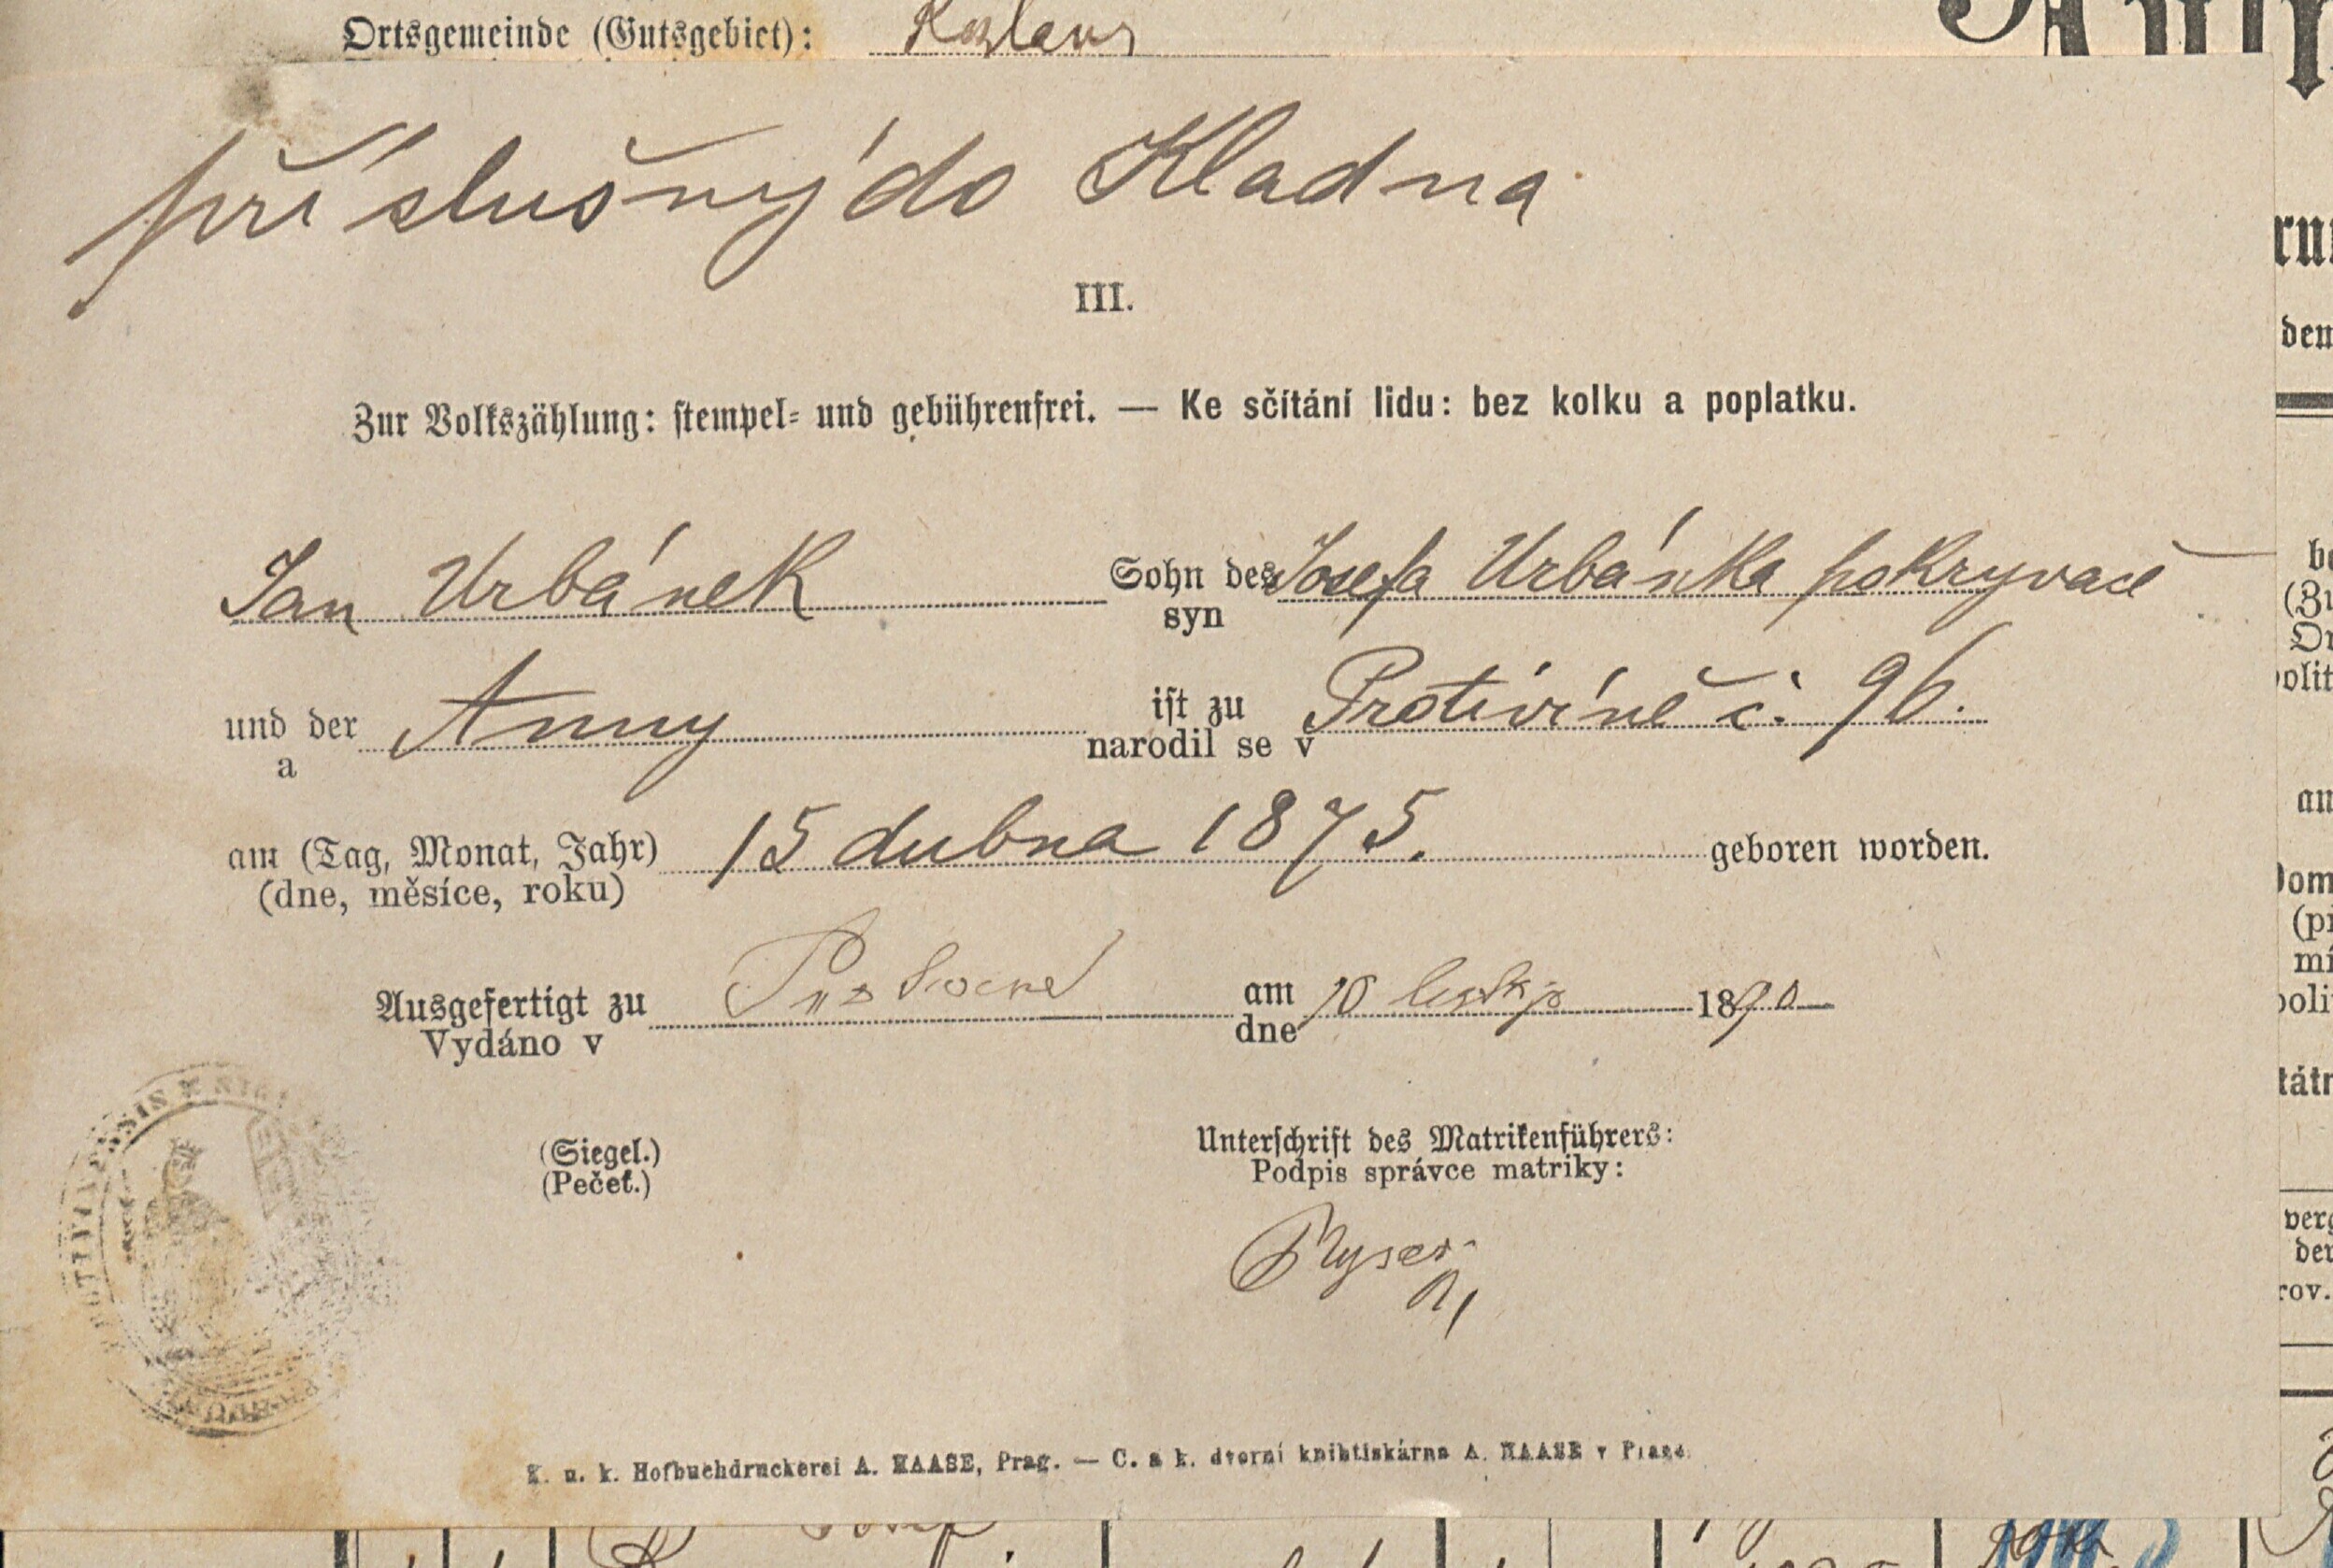 Ortsgemeinde (Gutsgebiet):
příslušný do Kladna
III.
Zur Volkszählung: stempel- und gebührenfrei. — Ke sčítání lidu: bez kolku a poplatku.
Jan Urbánek Sohn des Josefa Urbánka pokrývače
syn
und der Anny ist zu Protivíně č. 96.
a narodil se v
am (Tag, Monat, Jahr) 15 dubna 1875. geboren worden.
(dne, měsíce, roku)
Ausgefertigt zu am 1890
Vydáno v dne
(Siegel.) Unterschrift des Matrikenführers:
(Pečeť.) Podpis správce matriky:
K. u. k. Hofbuchdruckerei A. HAASE, Prag. — C. a k. dvorní knihtiskárna A. HAASE v Praze.